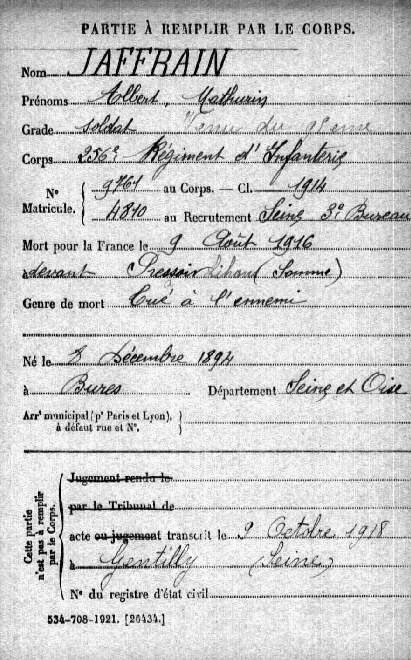 PARTIE À REMPLIR PAR LE CORPS.
Nom JAFFRAIN
Prénoms Albert, Mathurin
Grade soldat Venu du 9
Corps 236e Régiment d'Infanterie
N° Matricule. { 9761 au Corps. — Cl. 1914
4810 au Recrutement Seine 3e Bureau
Mort pour la France le 9 Août 1916
devant Pressoir Lihons (Somme)
Genre de mort Tué à l'ennemi
Né le 8 Décembre 1894
à Bures Département Seine et Oise
Arrt municipal (pr Paris et Lyon),
à défaut rue et N°.
Cette partie
n'est pas à remplir
par le Corps.
Jugement rendu le
par le Tribunal de
acte ou jugement transcrit le 9 Octobre 1918
à Gentilly (Seine)
N° du registre d'état civil
534-708-1921. [26434.]